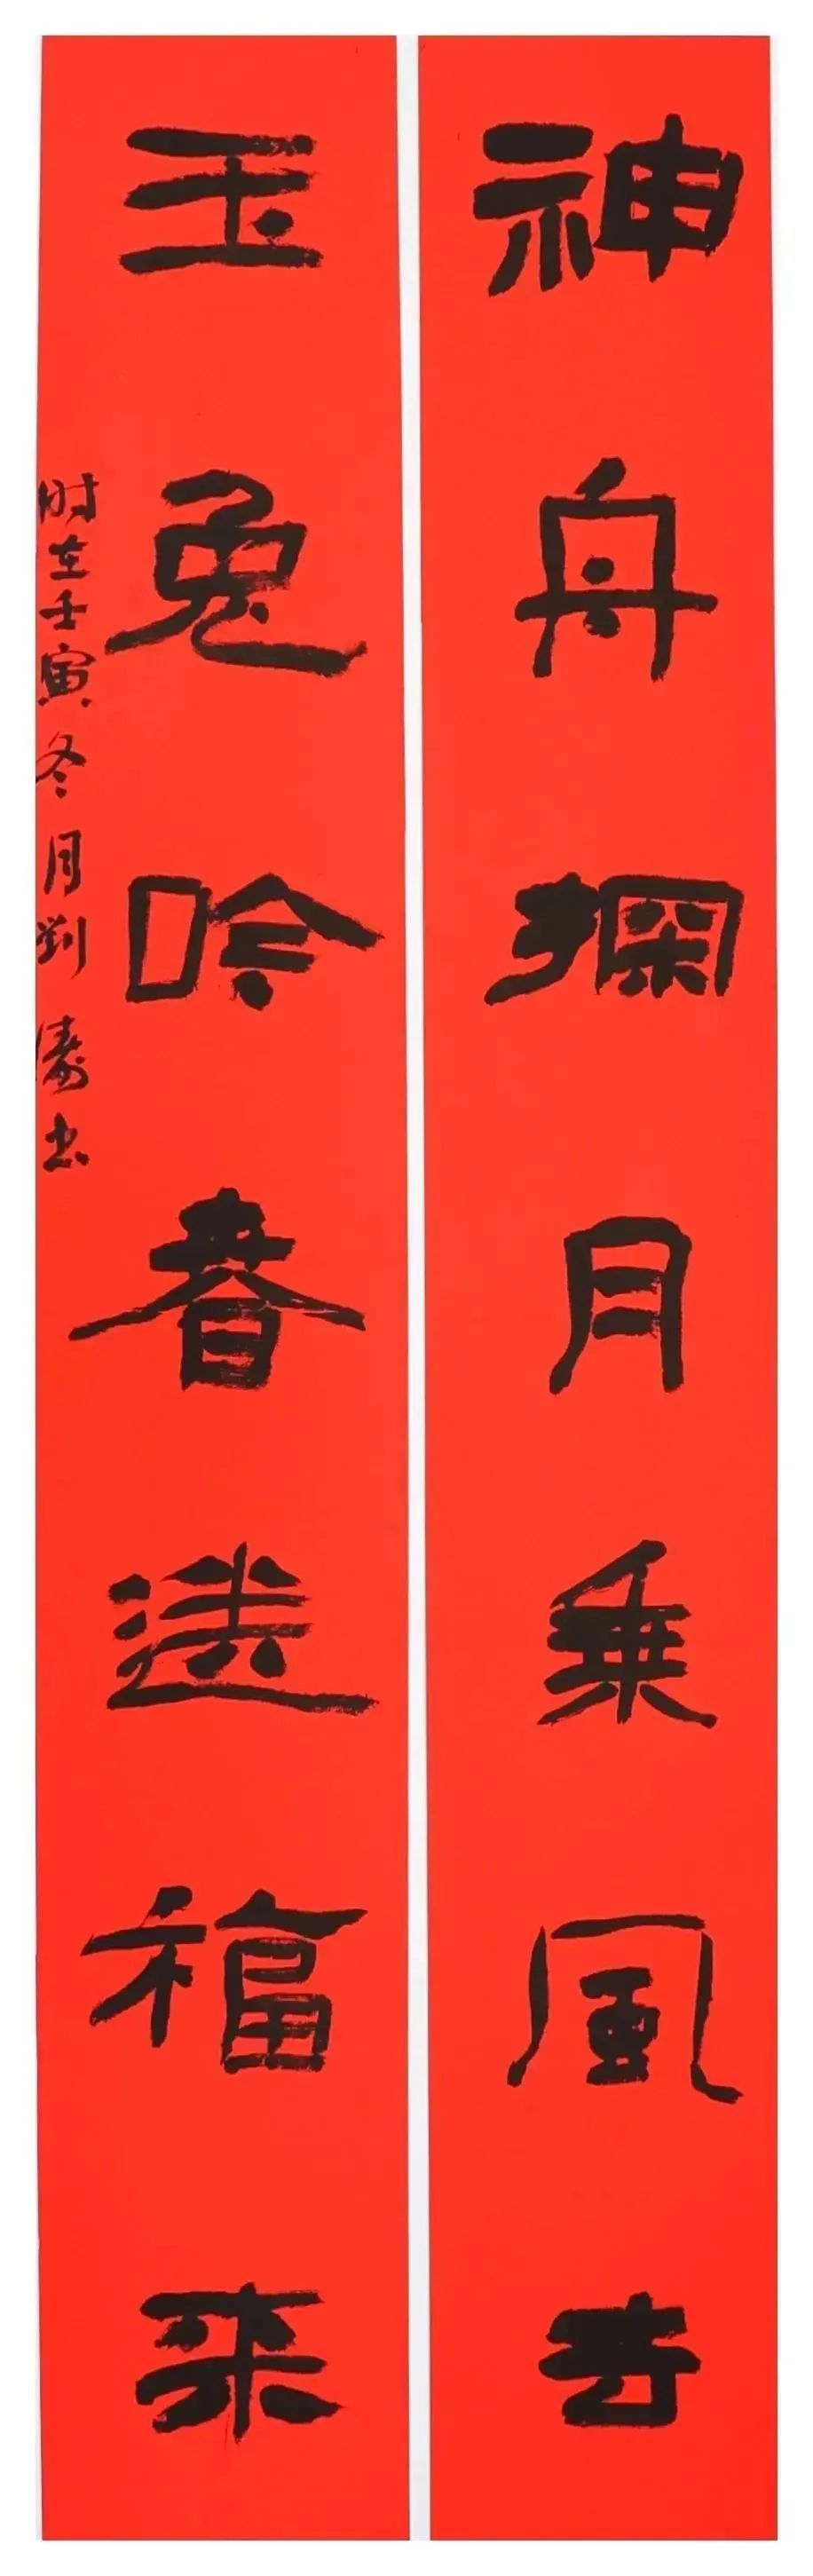 神舟探月乘風去
玉兔吟春送福来
时在壬寅冬月劉濤书